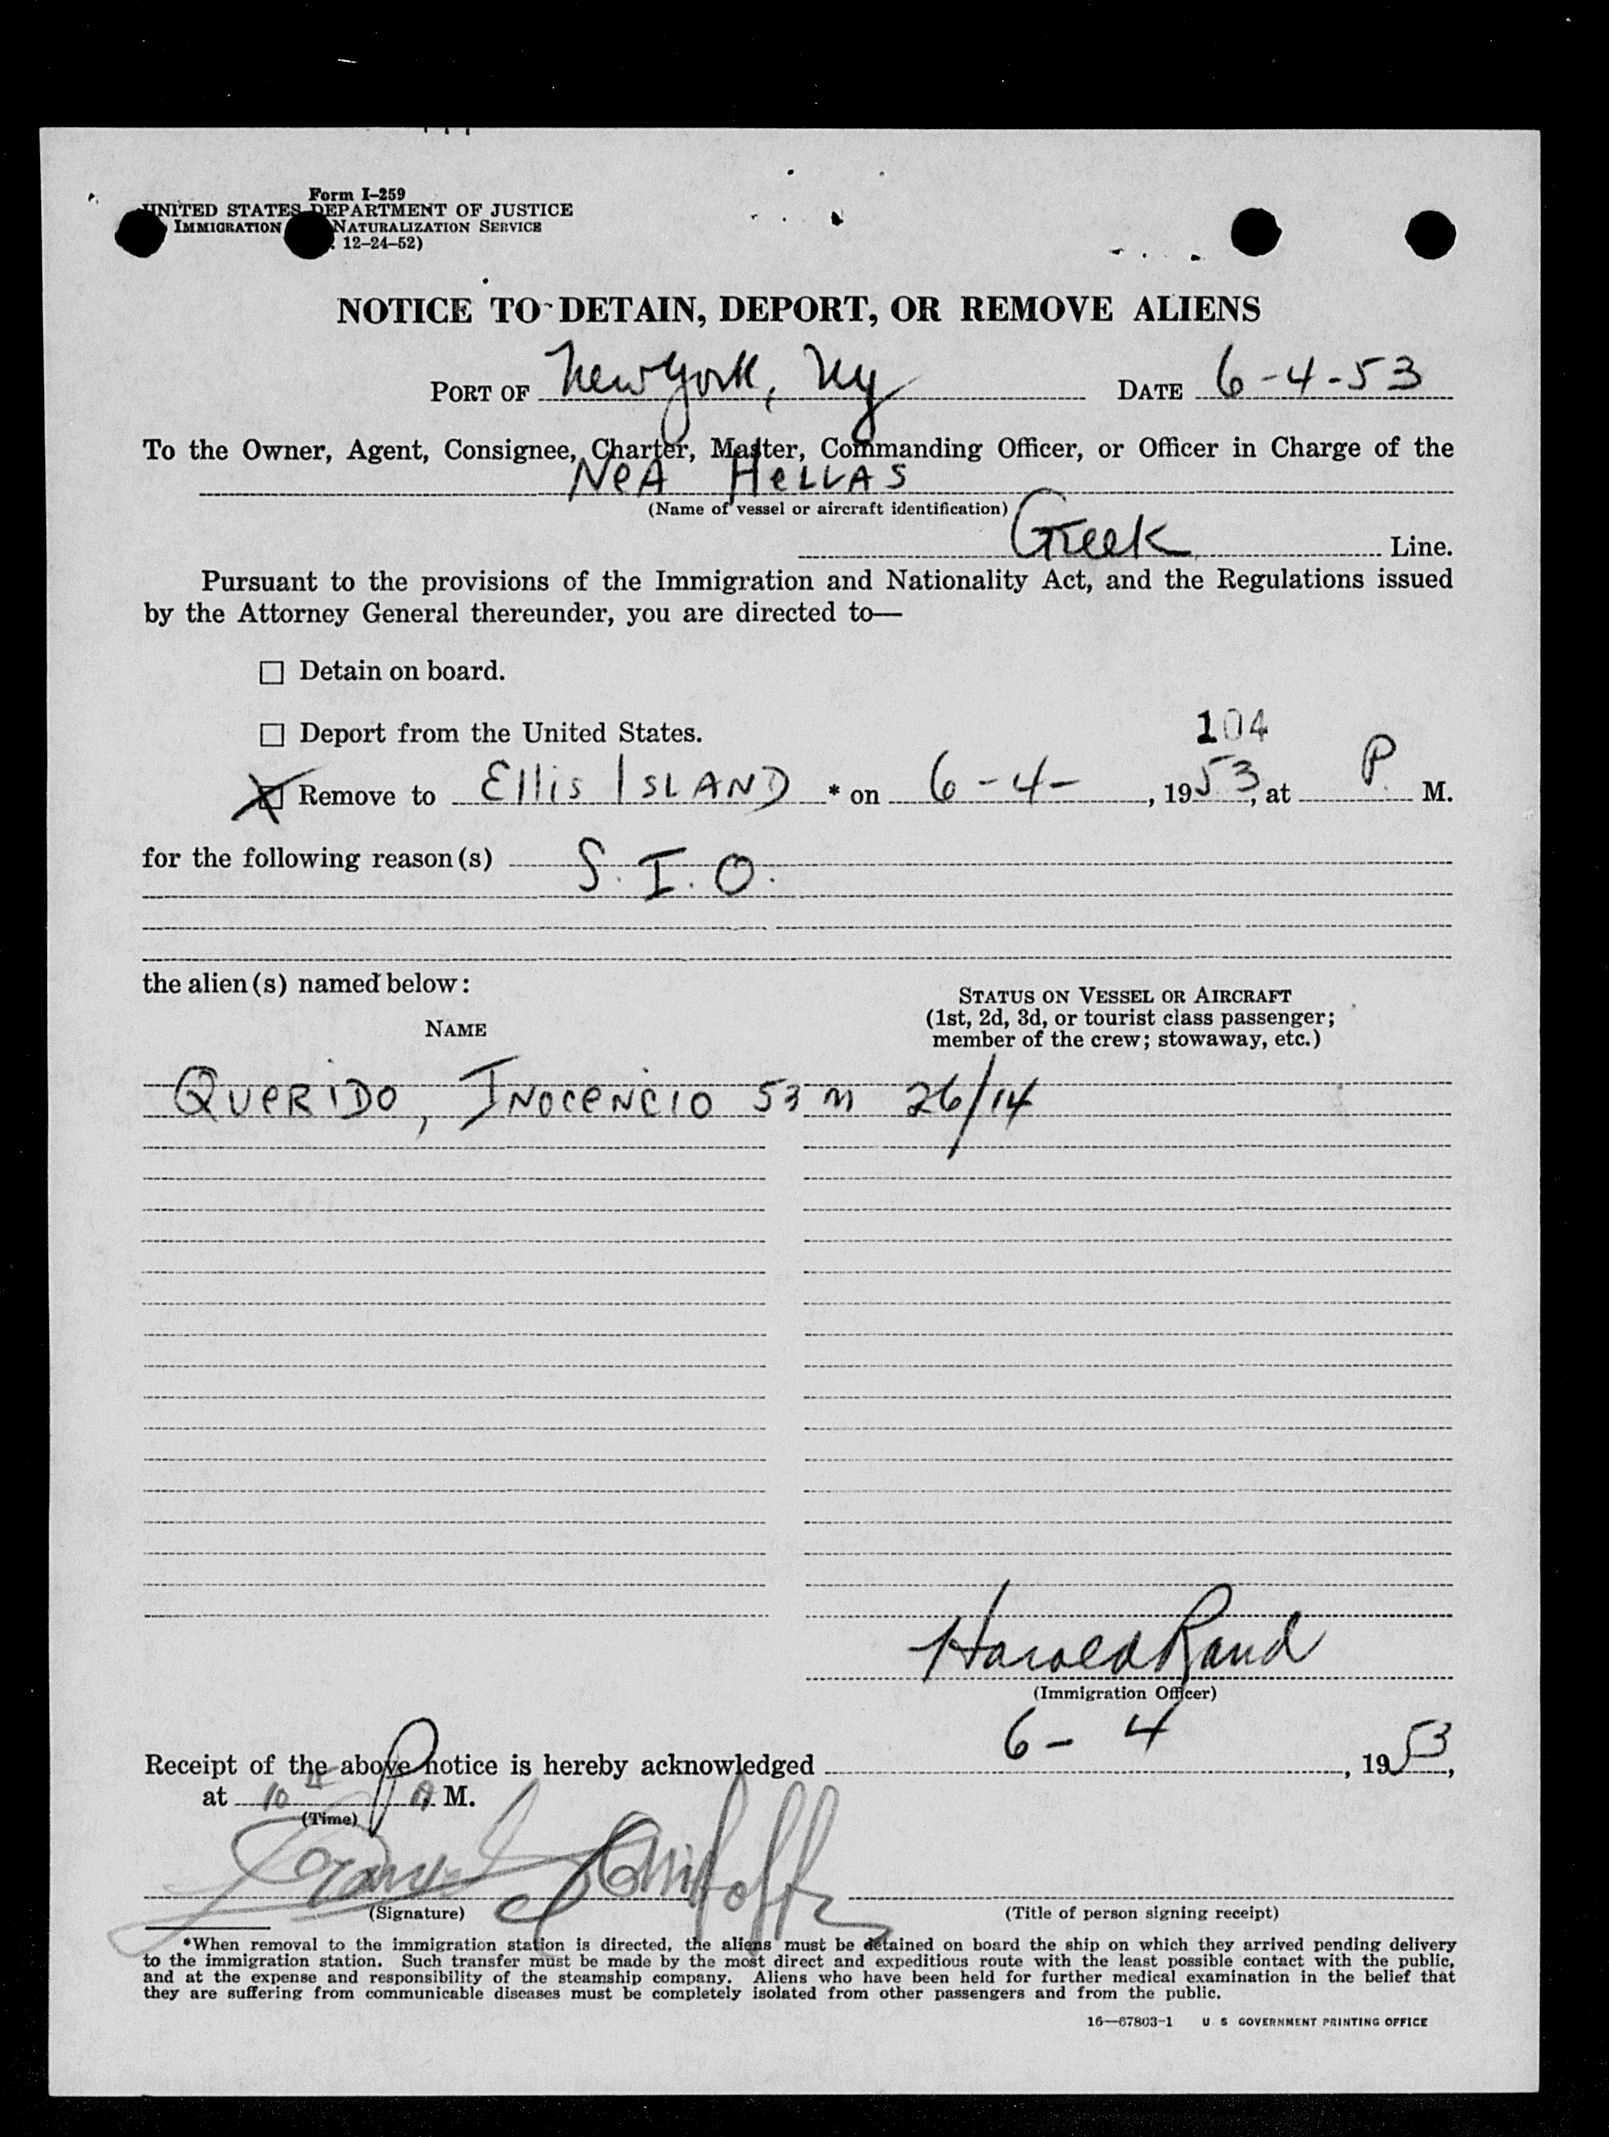 Form I-259
UNITED STATES DEPARTMENT OF JUSTICE
IMMIGRATION NATURALIZATION SERVICE
12-24-52)
NOTICE TO DETAIN, DEPORT, OR REMOVE ALIENS
PORT OF New York, Ny DATE 6-4-53
To the Owner, Agent, Consignee, Charter, Master, Commanding Officer, or Officer in Charge of the
NeA HeLLAS
(Name of vessel or aircraft identification)
Greek Line.
Pursuant to the provisions of the Immigration and Nationality Act, and the Regulations issued
by the Attorney General thereunder, you are directed to—
☐ Detain on board.
☐ Deport from the United States.
104
☒ Remove to Ellis ISLAND * on 6-4-, 1953, at P. M.
for the following reason(s) S.I.O.
the alien(s) named below:
NAME
STATUS ON VESSEL OR AIRCRAFT
(1st, 2d, 3d, or tourist class passenger;
member of the crew; stowaway, etc.)
QUERIDO, INOCENCIO 53 m 26/14
Harold Rand
(Immigration Officer)
Receipt of the above notice is hereby acknowledged 6-4, 1953,
at 10 P M.
(Time)
(Signature)
(Title of person signing receipt)
*When removal to the immigration station is directed, the aliens must be detained on board the ship on which they arrived pending delivery
to the immigration station. Such transfer must be made by the most direct and expeditious route with the least possible contact with the public,
and at the expense and responsibility of the steamship company. Aliens who have been held for further medical examination in the belief that
they are suffering from communicable diseases must be completely isolated from other passengers and from the public.
16—67803-1 U S GOVERNMENT PRINTING OFFICE